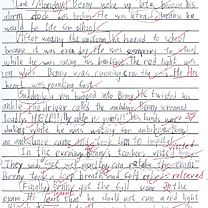 "Last Monday, Benny woke up late because his
alarm clock was broken. He was afraid because he
would be late for school.
After wearing the uniform, he hurried to school
because it was exam day. He was
while he was eating his breakfast. The red light was
on. Benny was running cross the road. His
heart was pounding fast.
Suddenly, a van him. He twisted his
ankle. The driver called the ambulance. Benny screamed
loudly, "HELP!! My ankle is painful!" His hands were
shaking while he was waiting for ambulance. Soon,
an ambulance came and took him to hospital.
In the evening, Benny's teachers visited
They said, "Get well soon! You can retake
Benny took a deep breath and felt relieved
"Finally, Benny got the full score in the
exam. He learnt that he should not run a red light